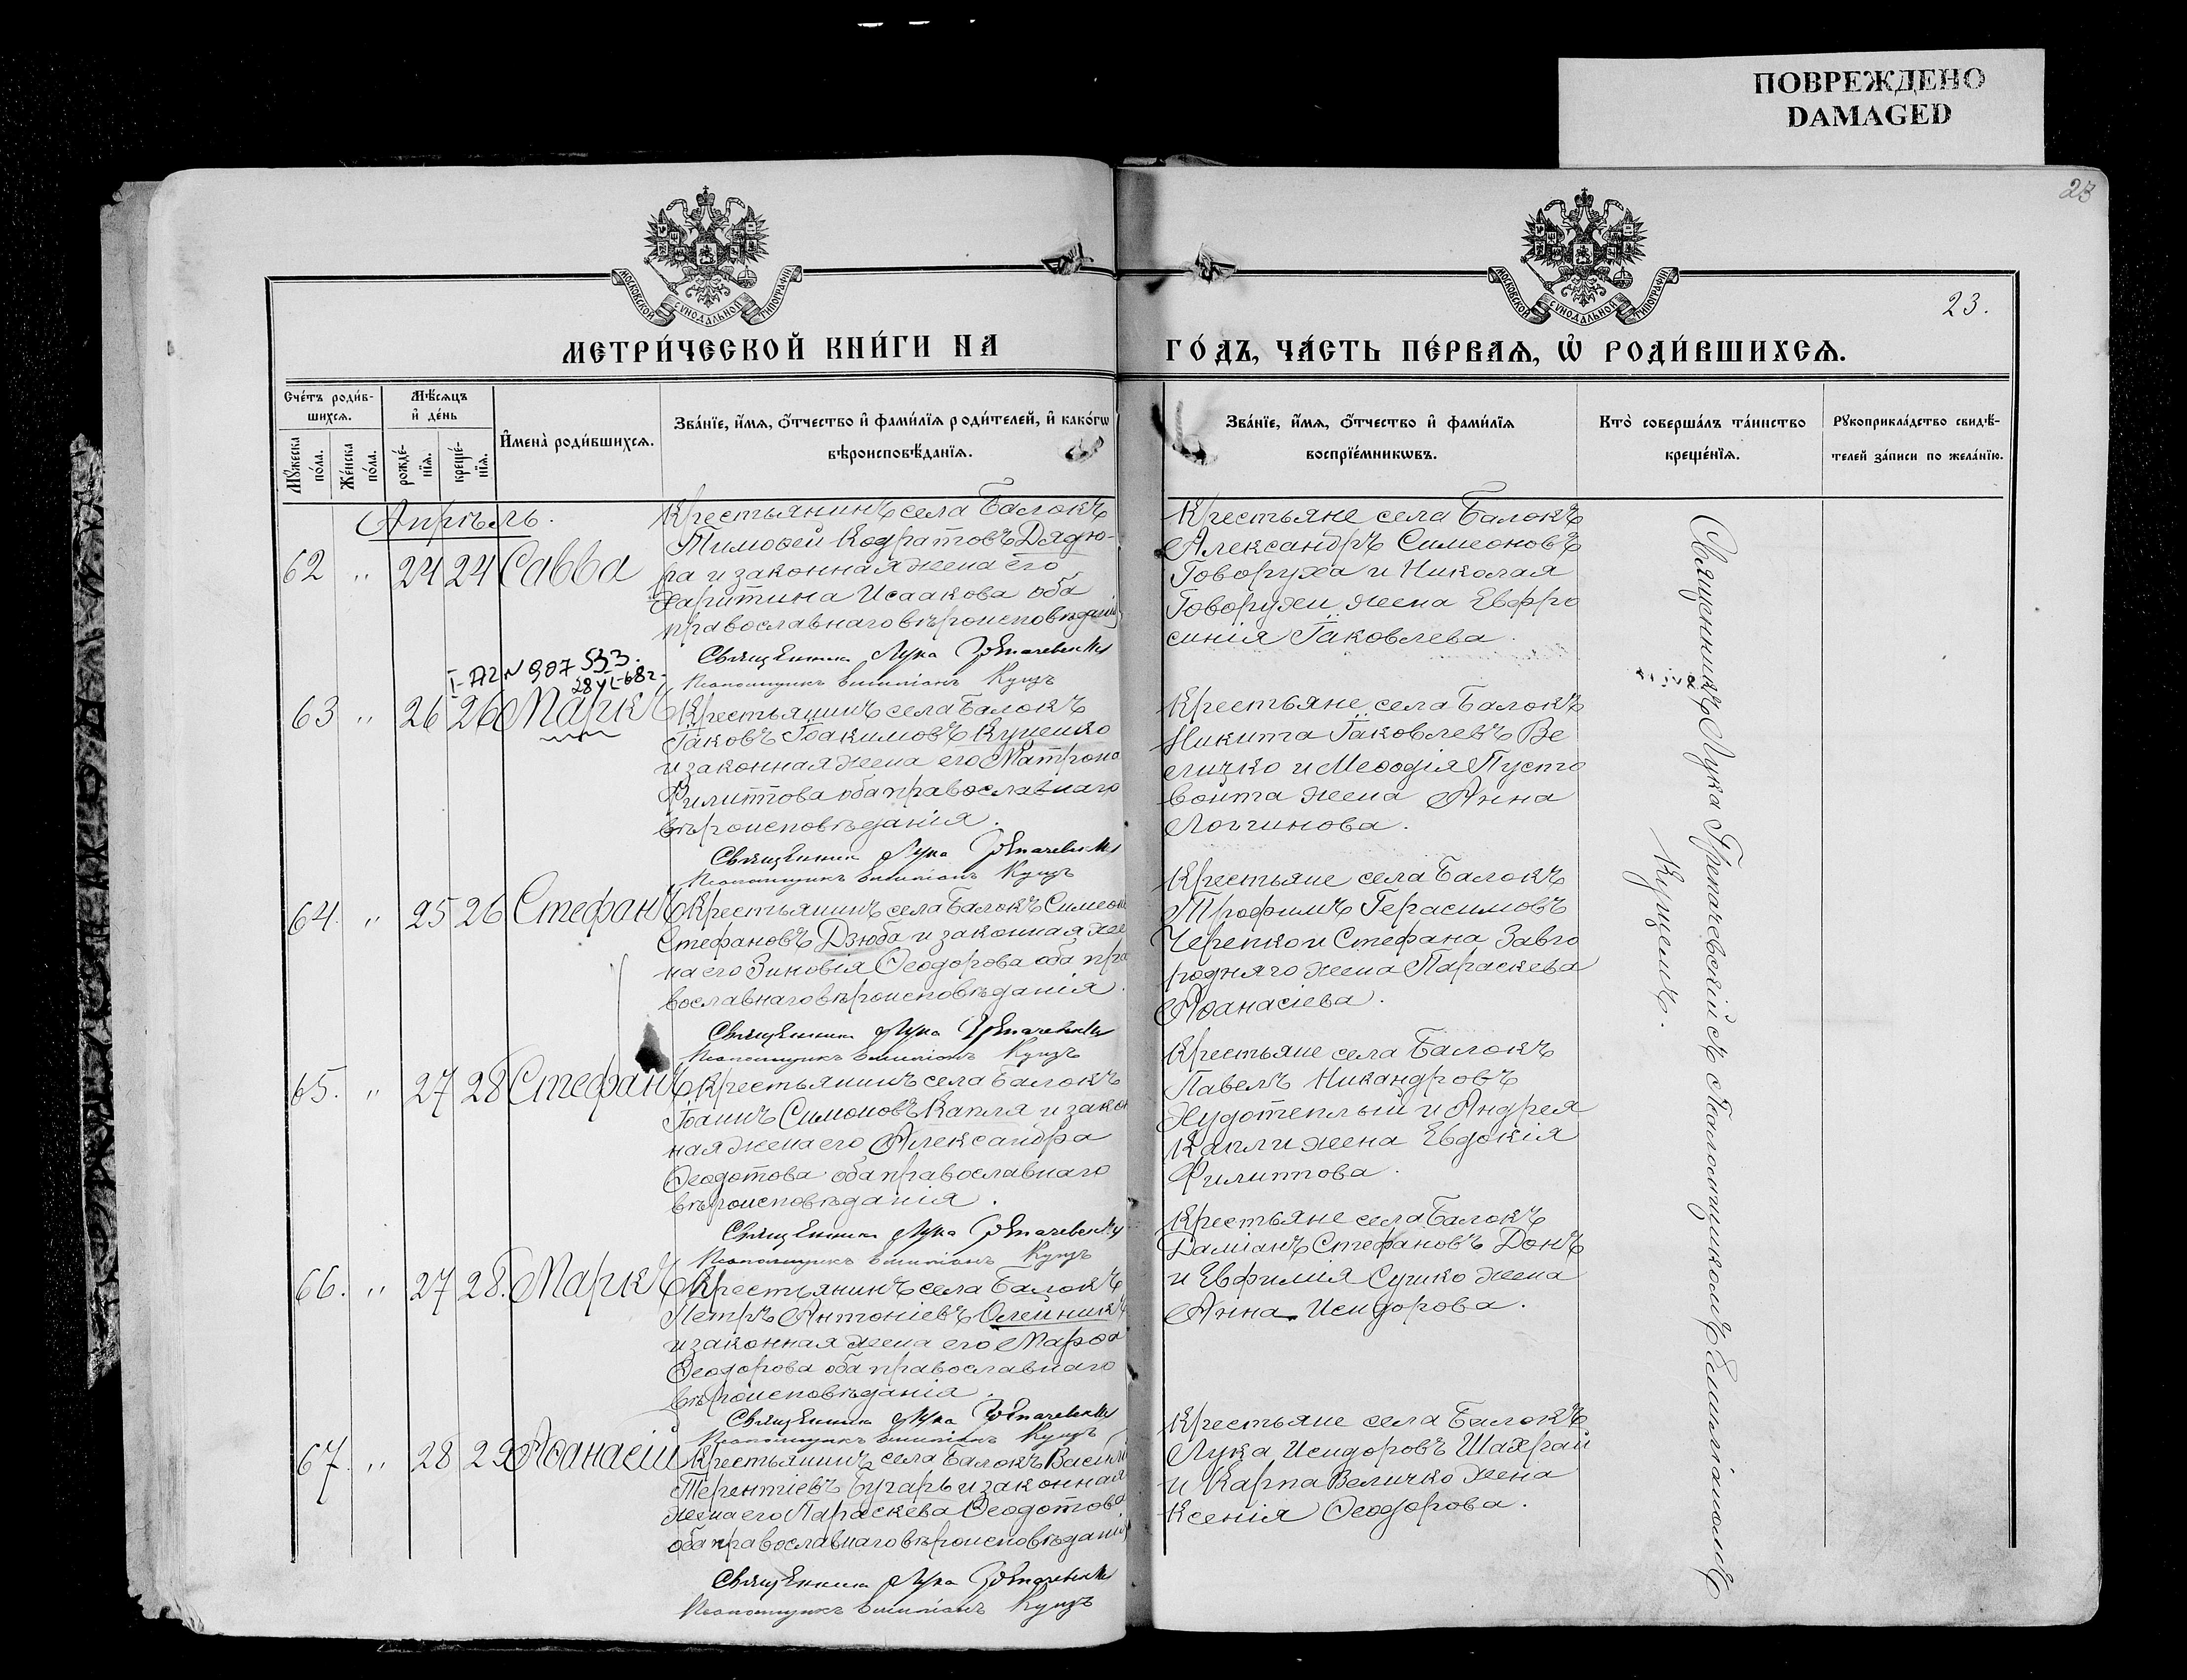 ПОВРЕЖДЕНО
DAMAGED
23
23.
МОСКОВСКОЙ СѴНОДАЛЬНОЙ ТИПОГРАФІИ
МОСКОВСКОЙ СѴНОДАЛЬНОЙ ТИПОГРАФІИ
МЕТРИ́ЧЕСКОЙ КНИ́ГИ НА
ГО́ДЪ, ЧА́СТЬ ПЕ́РВАЯ, Ѡ҆ РОДИ́ВШИХСЯ.
Сче́тъ роди́в-
шихся.
Мꙋ́жеска по́ла.
Же́нска по́ла.
Мѣ́сяцъ
и҆ де́нь
рожде́-
нїя.
креще́-
нїя.
И҆мена̀ роди́вшихся.
Зва́нїе, и҆́мя, ѻ҆́тчество и҆ фами́лїя роди́телей, и҆ како́гѡ
вѣроисповѣ́данїя.
Зва́нїе, и҆́мя, ѻ҆́тчество и҆ фами́лїя
воспрїе́мникѡвъ.
Кто̀ соверша́лъ та́инство
креще́нїя.
Рꙋкоприкла́дство свидѣ́-
телей за́писи по жела́нїю.
Апрѣль.
62 " 24 24 Савва
Крестьянинъ села Балокъ
Тимоѳей Кодратовъ Дядю-
ра и законная жена его
Харитина Исаакова оба
православнаго вѣроисповѣданія
Священникъ Лука Гре­пачевскій
Псаломщикъ Емиліанъ Куцъ
Крестьяне села Балокъ
Александръ Симеоновъ
Говоруха и Николая
Говорухи жена Евфро
синія Іаковлева.
I-АГ N 907 533.
28 VI-68 г.
63 " 26 26 Маркъ
Крестьянинъ села Балокъ
Іаковъ Іоакимовъ Куценко
и законная жена его Матрона
Филиппова оба православнаго
вѣроисповѣданія.
Священникъ Лука Грепачевскій
Псаломщикъ Емиліанъ Куцъ
Крестьяне села Балокъ
Никита Іаковлевъ Ве
личко и Меѳодія Пусто
войта жена Анна
Логгинова.
64. " 25 26 Стефанъ
Крестьянинъ села Балокъ Симеонъ
Стефановъ Дзюба и законная же
на его Зиновія Ѳеодорова оба пра
вославнаго вѣроисповѣданія.
Священникъ Лука Грепачевскій
Псаломщикъ Емиліанъ Куцъ
Крестьяне села Балокъ
Трофимъ Герасимовъ
Черепко и Стефана Завго
родняго жена Параскева
Аѳанасіева.
65. " 27 28 Стефанъ
Крестьянинъ села Балокъ
Іоаннъ Симоновъ Капля и закон
ная жена его Александра
Ѳеодотова оба православнаго
вѣроисповѣданія.
Священникъ Лука Грепачевскій
Псаломщикъ Емиліанъ Куцъ
Крестьяне села Балокъ
Павелъ Никандровъ
Худотеплый и Андрея
Капли жена Евдокія
Филиппова.
66. " 27 28. Маркъ
Крестьянинъ села Балокъ
Петръ Антоніевъ Олейникъ
и законная жена его Марѳа
Ѳеодорова оба православнаго
вѣроисповѣданія.
Священникъ Лука Грепачевскій
Псаломщикъ Емиліанъ Куцъ
Крестьяне села Балокъ
Даміанъ Стефановъ Донъ
и Евфимія Сушко жена
Анна Исидорова.
67. " 28 29 Аѳанасій
Крестьянинъ села Балокъ Василій
Терентіевъ Бугарь и законная
жена его Параскева Ѳеодотова
оба православнаго вѣроисповѣданія
Священникъ Лука Грепачевскій
Псаломщикъ Емиліанъ Куцъ
Крестьяне села Балокъ
Лука Исидоровъ Шахрай
и Карпа Величко жена
Ксенія Ѳеодорова.
Священникъ Лука Грепачевскій съ Псаломщикомъ Емиліаномъ
Куцемъ.